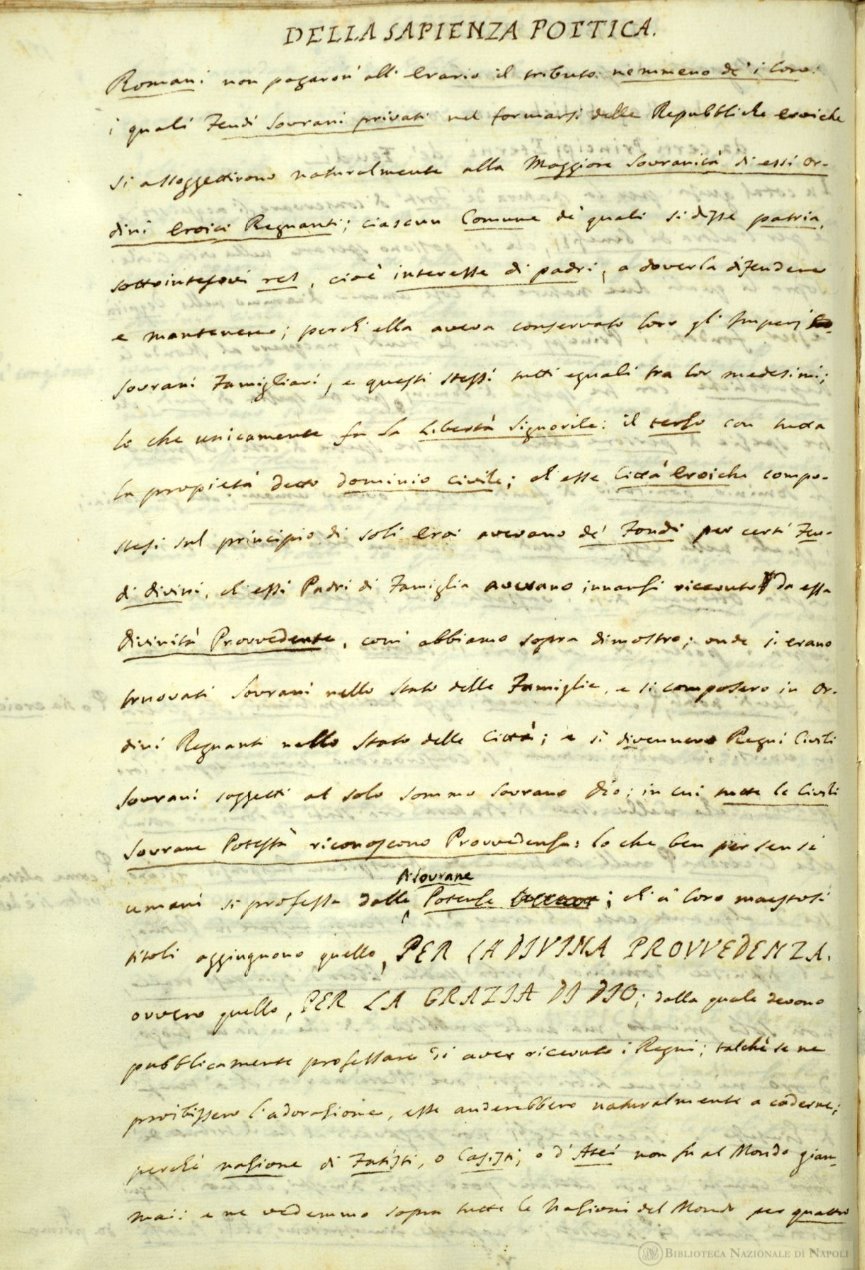 DELLA SAPIENZA POETICA.
Romani non pagaron' all' Erario il tributo nemmeno de' i loro:
i quali Fendi Sovrani privati nel formarsi delle Repubbliche eroiche
si assoggettirono naturalmente alla Maggiore Sovranità di essi Or-
dini Eroici Regnanti; ciascun Comune de' quali si disse patria,
sottointesovi res, cioè interesse di padri, a doverla difendere
e mantenere; perchè ella aveva conservato loro gl' Imperj
Sovrani Famigliari, e questi stessi tutti eguali tra lor medesimi;
lo che unicamente fa la Libertà Signorile: il terzo con tutta
la propietà detto dominio civile; ch' esse Città Eroiche compo-
stesi sul principio di soli Eroi avevano de' Fondi per certi Feu-
di divini, ch' essi Padri di Famiglia avevano innanzi ricevuto da essa
Divinità Provvedente, com' abbiamo sopra dimostro; onde si erano
truovati Sovrani nello Stato delle Famiglie, e si composero in Or-
dini Regnanti nello Stato delle Città; e sì divennero Regni Civili
Sovrani soggetti al solo sommo Sovrano Dio; in cui tutte le Civili
Sovrane Potestà riconoscono Provvedenza: lo che ben per sensi
umani si professa dalle Sovrane Potestà; ch' a' loro maestosi
titoli aggiungono quello, PER LA DIVINA PROVVEDENZA.
ovvero quello, PER LA GRAZIA DI DIO; dalla quale devono
pubblicamente professare di aver ricevuto i Regni; talchè se ne
proibissero l'adorazione, esse anderebbero naturalmente a caderne;
perchè nazione di Fatisti, o Casisti, o d'Atei non fu al Mondo giam-
mai: e ne vedemmo sopra tutte le Nazioni del Mondo per quattro
BIBLIOTECA NAZIONALE DI NAPOLI